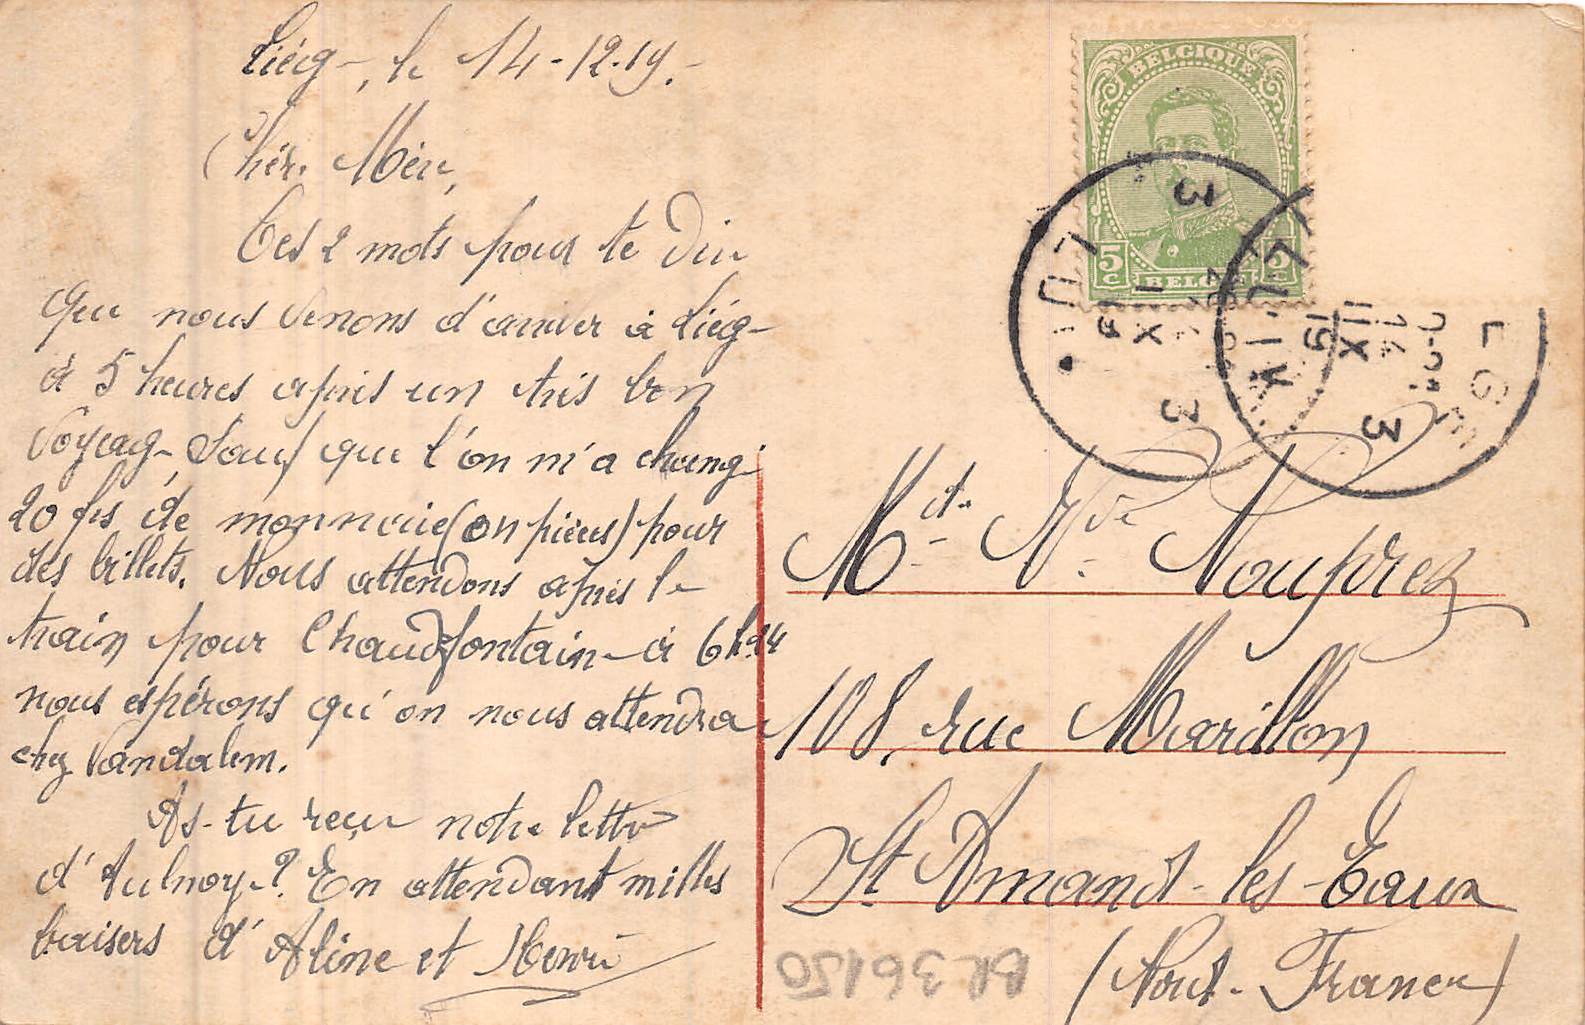 Liège, le 14-12-19.
Chère Mère,
Ces 2 mots pour te dire
que nous venons d'arriver à Liège
à 5 heures après un très bon
voyage sauf que l'on m'a changé
20 frs de monnaie (en pièces) pour
des billets. Nous attendons après le
train pour Chaudfontaine à 6h14
nous espérons qu'on nous attendra
chez Vandalem.
As-tu reçu notre lettre
d'Aulnoye? En attendant milles
baisers d'Aline et Henri
BELGIQUE
5c 5c
BELGIË
3
3
3
14
XII
19
Mde Vve Nouprez
108, rue Marillon
St Amand-les-Eaux
(Nord-France)
BL 36150